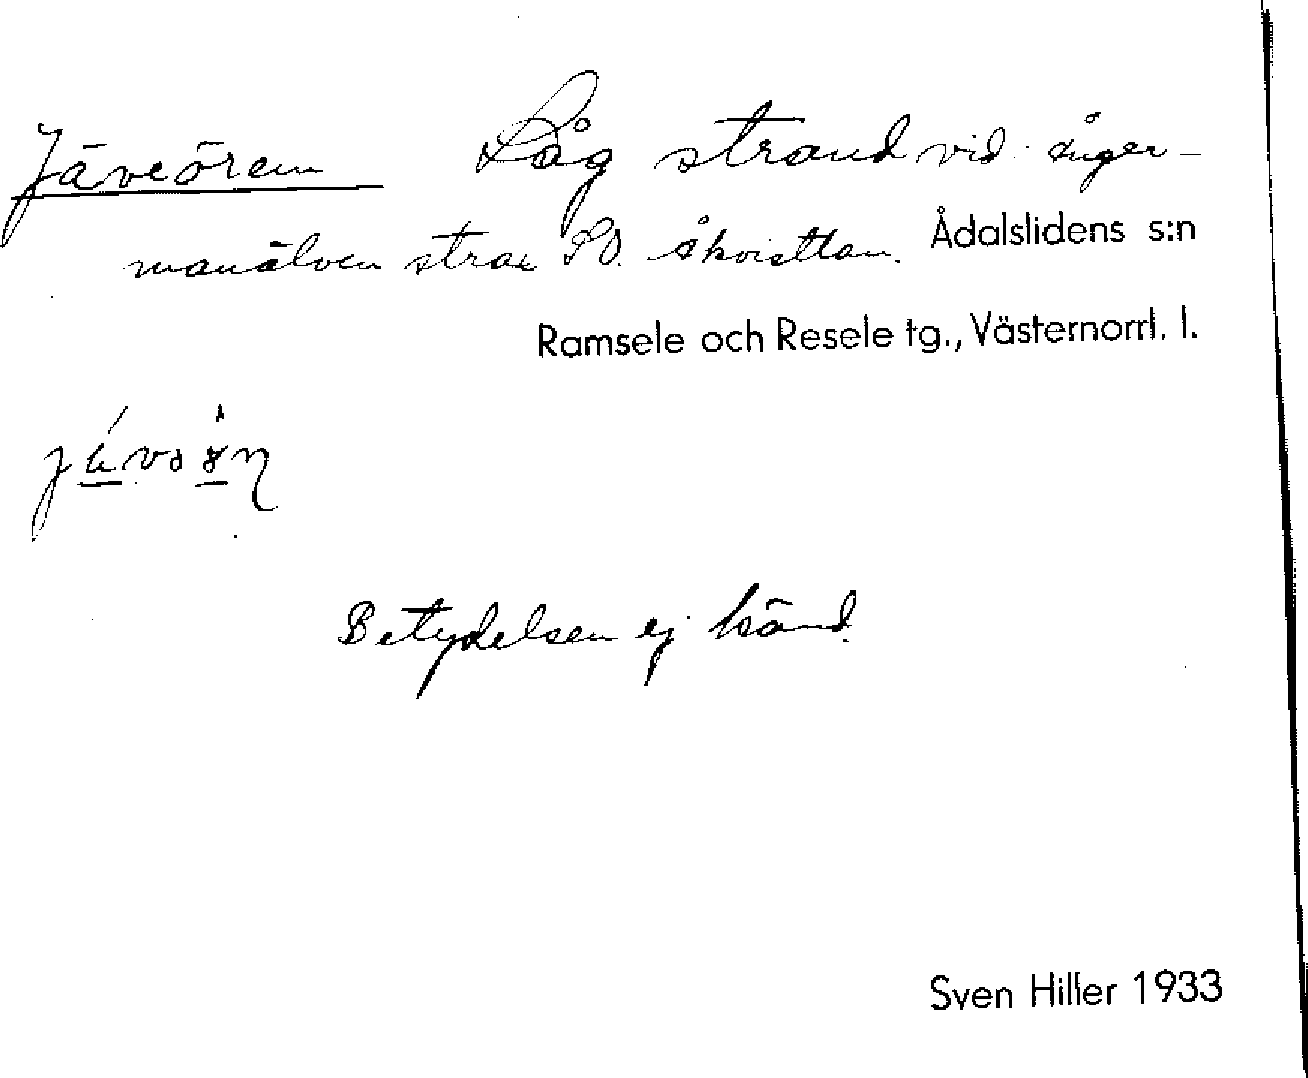 Jäveören Låg strand vid Ånger-
manälven strax SO. Åkvisslan. Ådalslidens s:n
Ramsele och Resele tg., Västernorrl. l.
Betydelsen ej känd.
Sven Hiller 1933